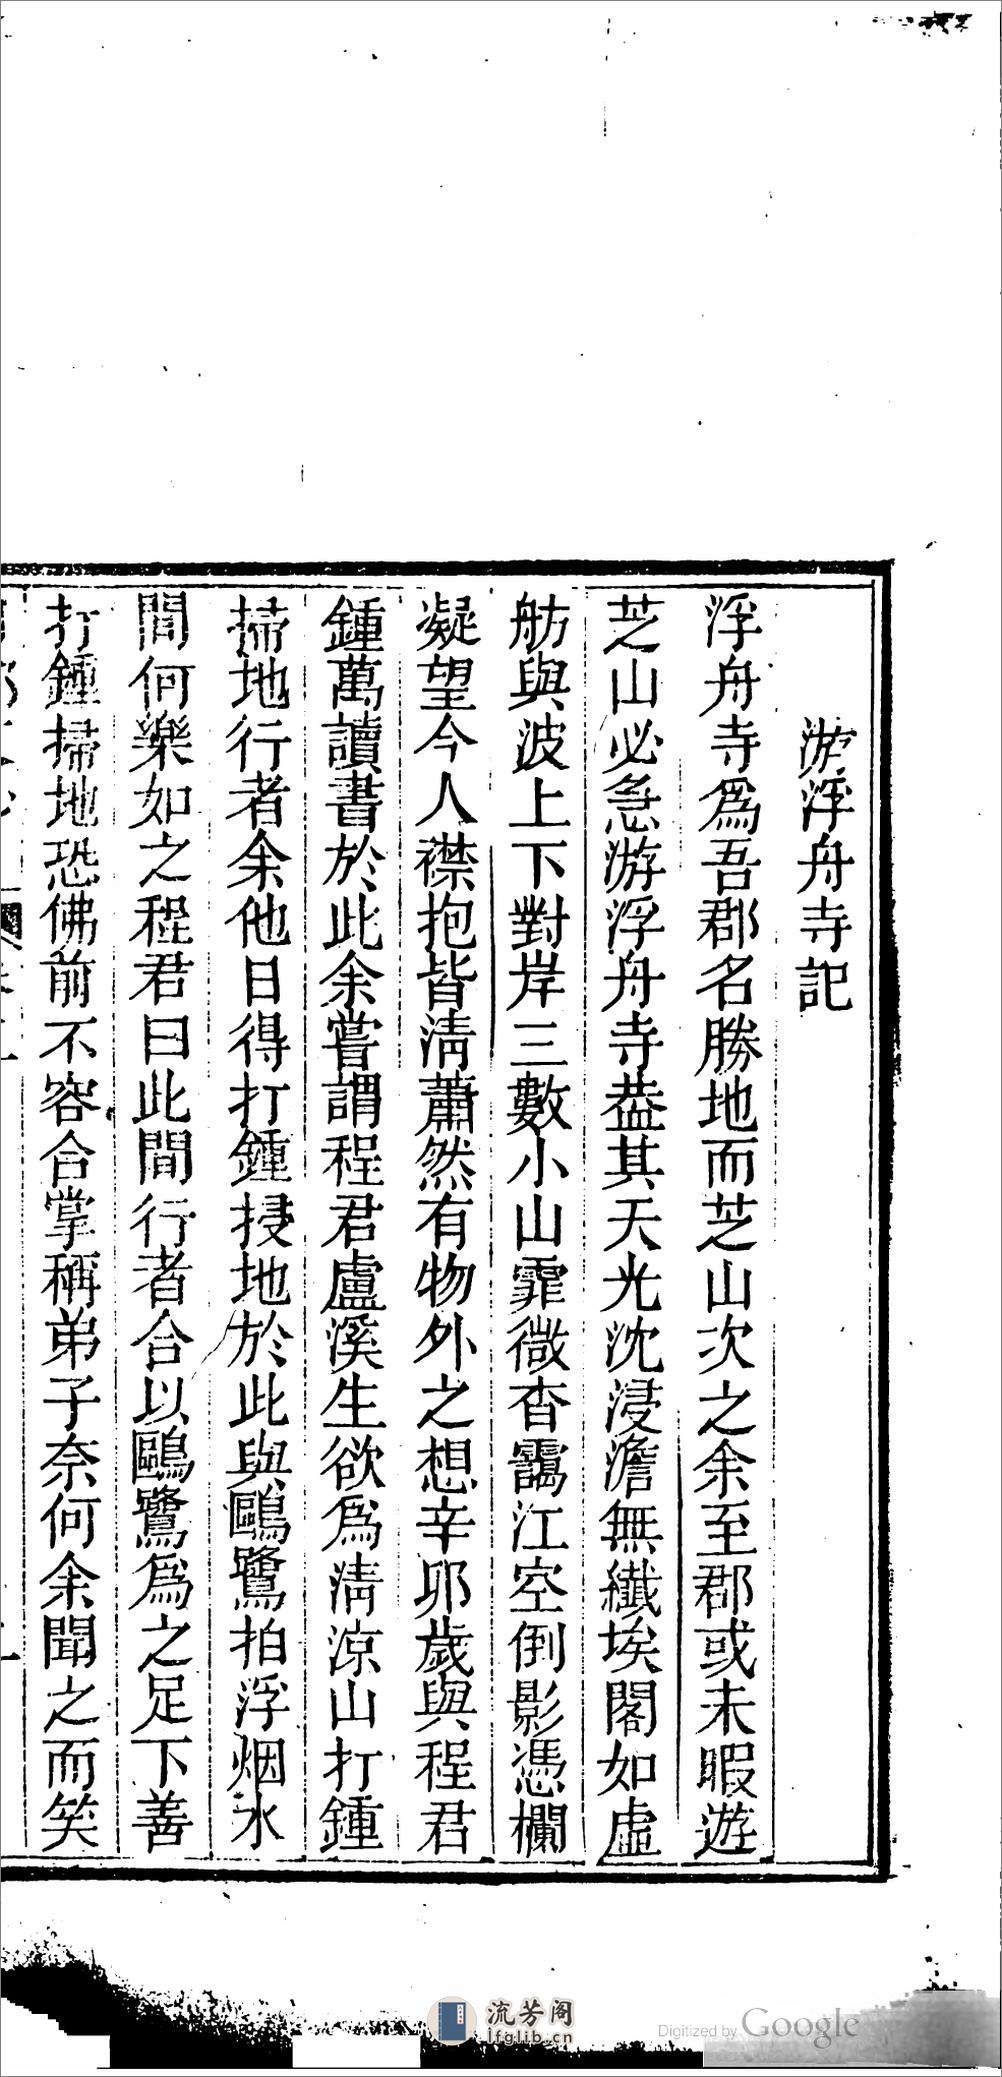 游浮舟寺記
浮舟寺爲吾郡名勝地而芝山次之余至郡或未暇遊
芝山必急游浮舟寺葢其天光沈浸澹無纖埃閣如虛
舫與波上下對岸三數小山霏微杳靄江空倒影憑欄
凝望今人襟抱皆淸蕭然有物外之想辛卯歲與程君
鍾萬讀書於此余嘗謂程君盧溪生欲爲淸涼山打鍾
掃地行者余他日得打鍾掃地於此與鷗鷺拍浮烟水
間何樂如之程君曰此間行者合以鷗鷺爲之足下善
打鍾掃地恐佛前不容合掌稱弟子奈何余聞之而笑
流芳阁
lfglib.cn
Digitized by Google